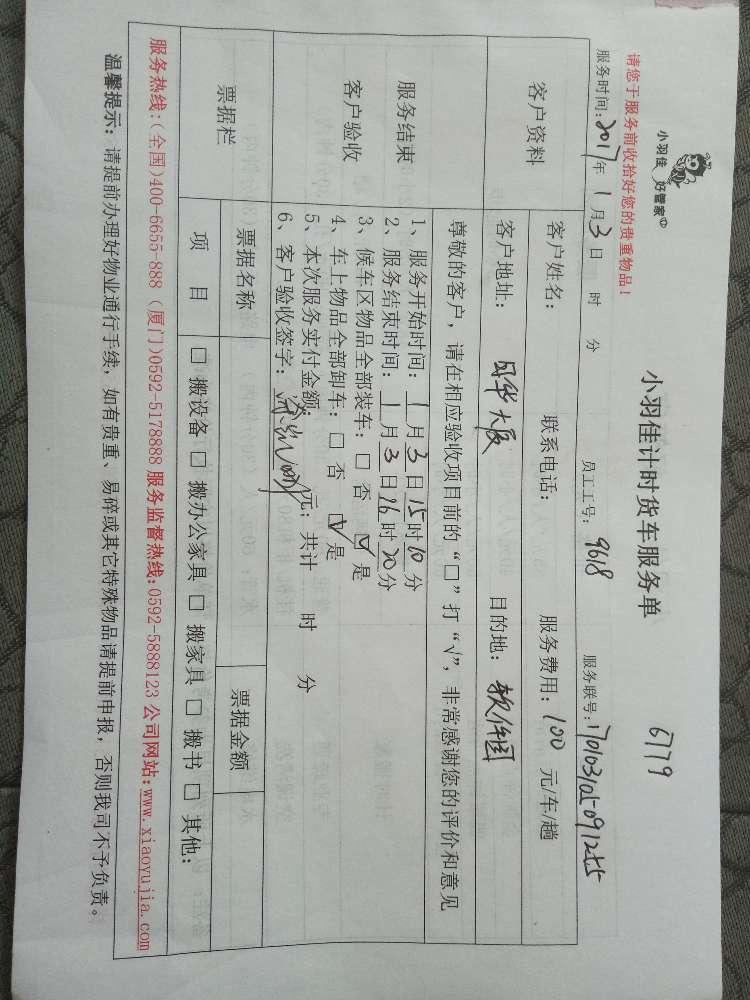 小羽佳 好管家
小羽佳计时货车服务单
6779
请您于服务前收拾好您的贵重物品！
服务时间：2017年 1 月 3 日 时 分 员工工号：9618 服务联号：
客户资料
客户姓名： 联系电话： 服务费用：100 元/车/趟
客户地址： 大厦 目的地：软件园
服务结束
客户验收
尊敬的客户，请在相应验收项目前的“□”打“√”，非常感谢您的评价和意见
1、服务开始时间：1月3日15时10分
2、服务结束时间：1月3日16时20分
3、候车区物品全部装车：□ 否 ☑ 是
4、车上物品全部卸车：□ 否 ☑ 是
5、本次服务实付金额： 元；共计 时 分
6、客户验收签字：
票据栏
票据名称 票据金额
项 目 □ 搬设备 □ 搬办公家具 □ 搬家具 □ 搬书 □ 其他：
服务热线：(全国)400-6655-888 (厦门)0592-5178888 服务监督热线:0592-5888123 公司网站:www.xiaoyujia.com
温馨提示：请提前办理好物业通行手续，如有贵重、易碎或其它特殊物品请提前申报，否则我司不予负责。